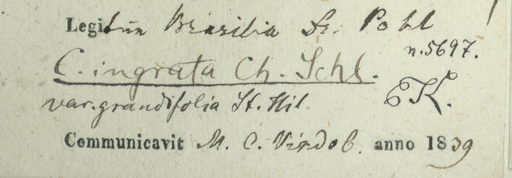 Legitur in Brasilia Dr. Pohl
n. 5697.
C. ingrata Ch. Schl.
var. grandifolia St. Hil. EK.
Communicavit M. C. Vindob. anno 1839